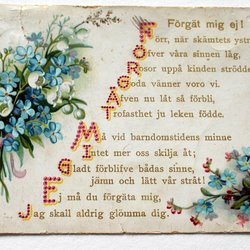 Förgät mig ej!
Förr, när skämtets yster
Öfver våra sinnen låg,
Rosor uppå kinden strödde
Goda vänner voro vi.
Äfven nu låt så förbli,
Trofasthet ju leken födde.
Må vid barndomstidens minne
Intet mer oss skilja åt;
Gladt förblifve bådas sinne,
jämn och lätt vår stråt!
Ej må du förgäta mig,
Jag skall aldrig glömma dig.